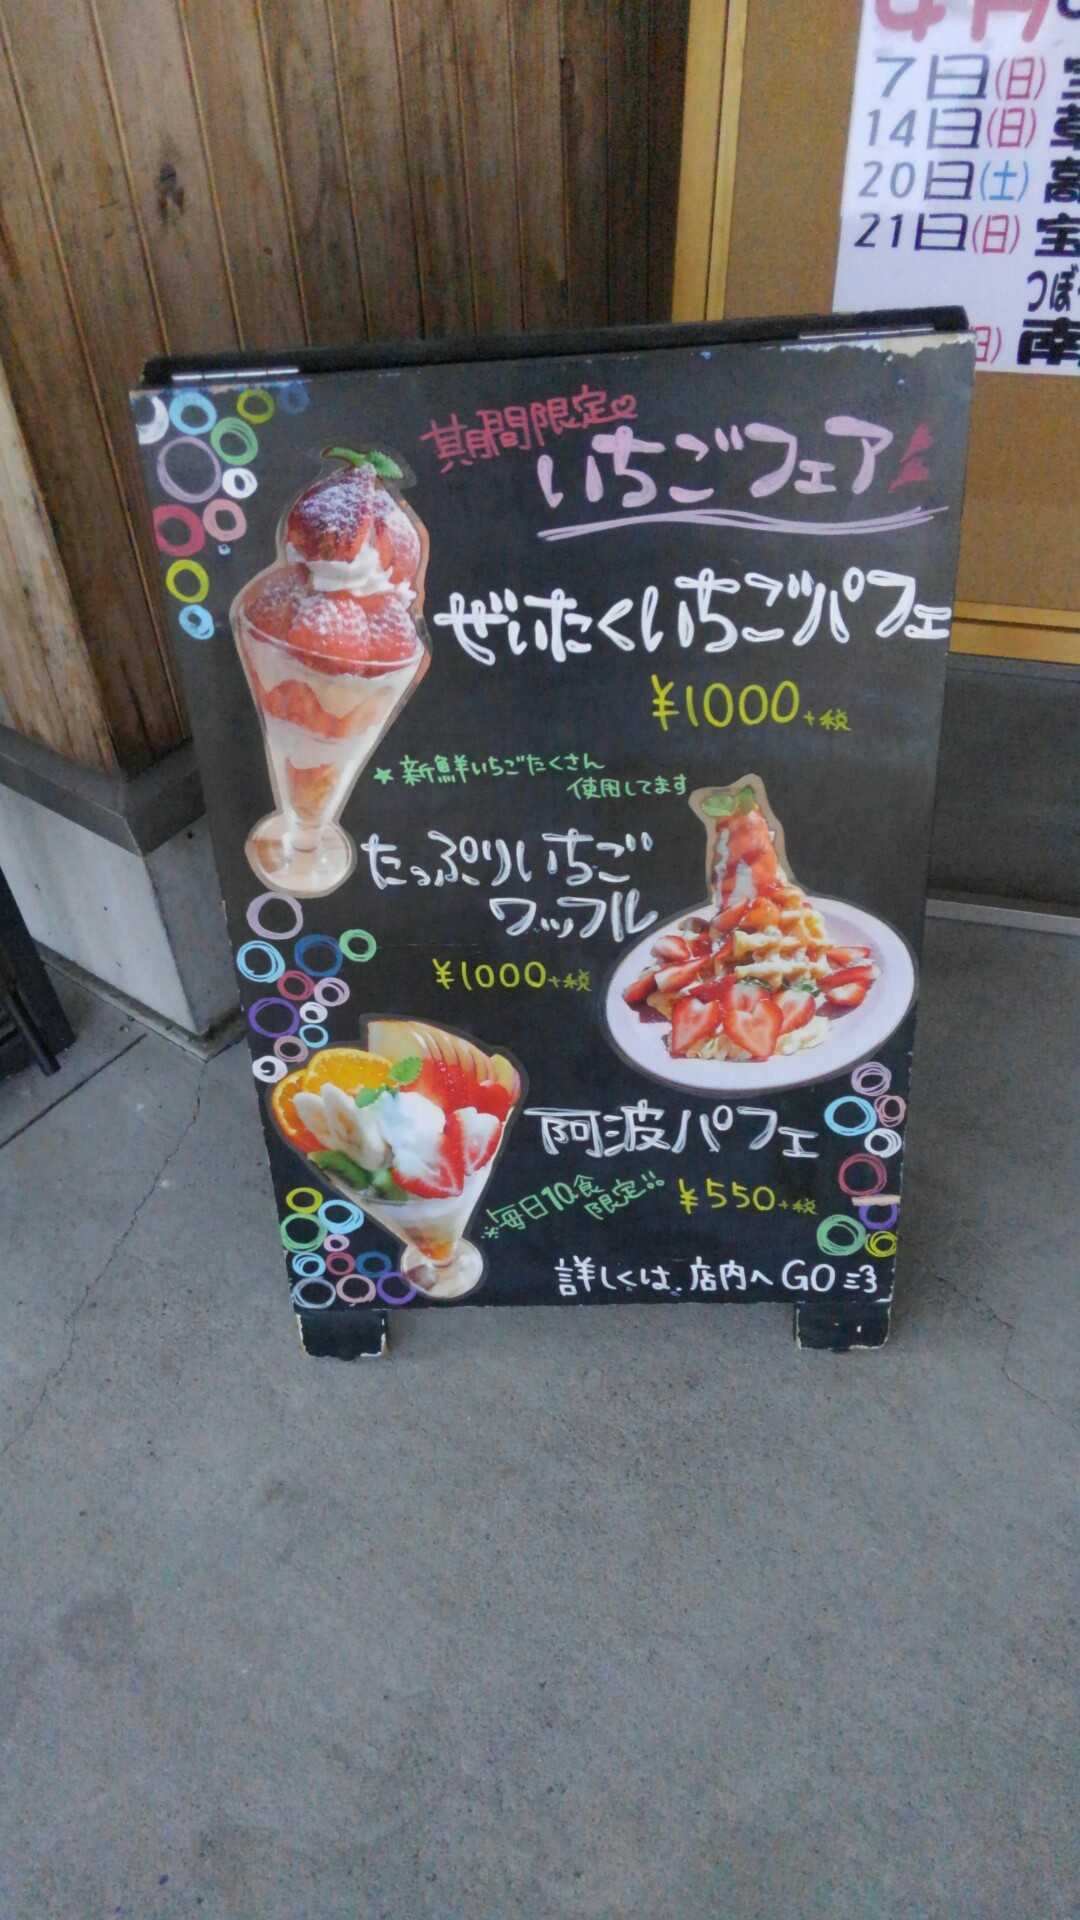 7日(日)
14日(日)
20日(土) 高
21日(日) 宝
つぼ
南
期間限定♡
いちごフェア
ぜいたくいちごパフェ
¥1000+税
★新鮮いちごたくさん
使用してます
たっぷりいちご
ワッフル
¥1000+税
阿波パフェ
※毎日10食
限定!!
¥550+税
詳しくは、店内へGO